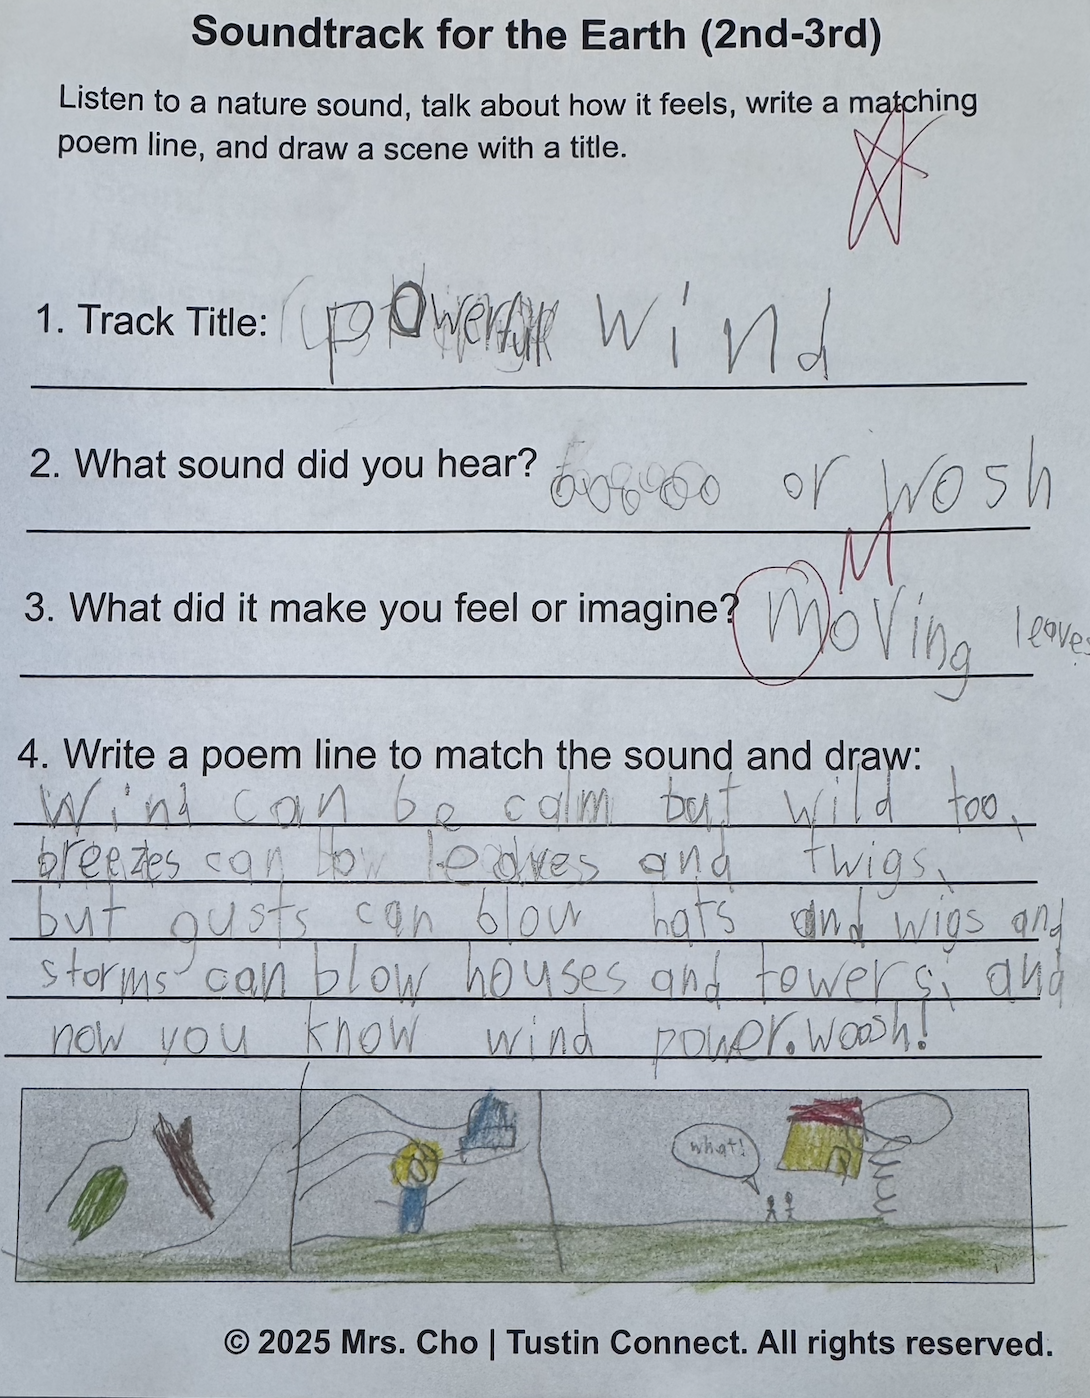 Soundtrack for the Earth (2nd-3rd)
Listen to a nature sound, talk about how it feels, write a matching
poem line, and draw a scene with a title.
1. Track Title: powerful wind
2. What sound did you hear? or Wosh
M
3. What did it make you feel or imagine? Moving leaves
4. Write a poem line to match the sound and draw:
Wind can be calm but wild too,
breezes can leaves and twigs,
but gusts can blow hats and wigs and
storms can blow houses and towers, and
now you know wind power. woosh!
what!
© 2025 Mrs. Cho | Tustin Connect. All rights reserved.